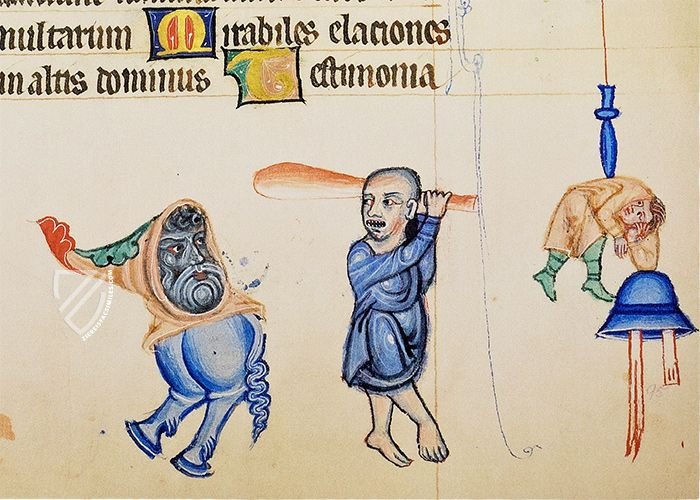 multarum Mirabiles elaciones
in altis dominus Testimonia
ZIEREISFACSIMILES.COM